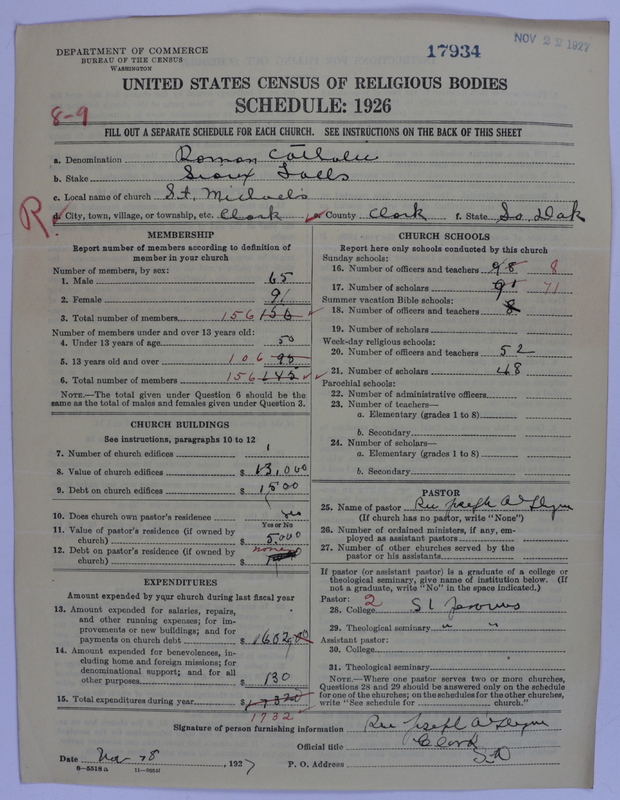 DEPARTMENT OF COMMERCE
BUREAU OF THE CENSUS
WASHINGTON
17934
NOV 22 1927
UNITED STATES CENSUS OF RELIGIOUS BODIES
SCHEDULE: 1926
8-9
FILL OUT A SEPARATE SCHEDULE FOR EACH CHURCH. SEE INSTRUCTIONS ON THE BACK OF THIS SHEET
a. Denomination Roman Catholic
b. Stake Sioux Falls
c. Local name of church St. Michaels
R.
d. City, town, village, or township, etc. Clark e. County Clark f. State So. Dak
MEMBERSHIP
Report number of members according to definition of
member in your church
Number of members, by sex:
1. Male 65
2. Female 91
3. Total number of members 156 156
Number of members under and over 13 years old:
4. Under 13 years of age 50
5. 13 years old and over 106 95
6. Total number of members 156 145
NOTE.—The total given under Question 6 should be
same as the total of males and females given under Question 3.
CHURCH BUILDINGS
See instructions, paragraphs 10 to 12
7. Number of church edifices 1
8. Value of church edifices $ 13,000
9. Debt on church edifices $ 1500
10. Does church own pastor's residence yes
Yes or No
11. Value of pastor's residence (if owned by
church) $ 5,000
12. Debt on pastor's residence (if owned by
church) $ none
EXPENDITURES
Amount expended by your church during last fiscal year
13. Amount expended for salaries, repairs,
and other running expenses; for im-
provements or new buildings; and for
payments on church debt $ 1602.00
14. Amount expended for benevolences, in-
cluding home and foreign missions; for
denominational support; and for all
other purposes $ 130
15. Total expenditures during year $
1732
CHURCH SCHOOLS
Report here only schools conducted by this church
Sunday schools:
16. Number of officers and teachers 8
17. Number of scholars 71
Summer vacation Bible schools:
18. Number of officers and teachers 8
19. Number of scholars
Week-day religious schools:
20. Number of officers and teachers 52
21. Number of scholars 48
Parochial schools:
22. Number of administrative officers
23. Number of teachers—
a. Elementary (grades 1 to 8)
b. Secondary
24. Number of scholars—
a. Elementary (grades 1 to 8)
b. Secondary
PASTOR
25. Name of pastor Rev Joseph A. Flynn
(If church has no pastor, write "None")
26. Number of ordained ministers, if any, em-
ployed as assistant pastors
27. Number of other churches served by the
pastor or his assistants
If pastor (or assistant pastor) is a graduate of a college or
theological seminary, give name of institution below. (If
not a graduate, write "No" in the space indicated.)
Pastor: 2
28. College St Jeromes
29. Theological seminary " "
Assistant pastor:
30. College
31. Theological seminary
NOTE.—Where one pastor serves two or more churches,
Questions 28 and 29 should be answered only on the schedule
for one of the churches; on the schedules for the other churches,
write "See schedule for church."
Signature of person furnishing information Rev Joseph A. Flynn
Official title
Clark
Date Nov 18, 1927 P. O. Address SD
8-5518a 11-9855